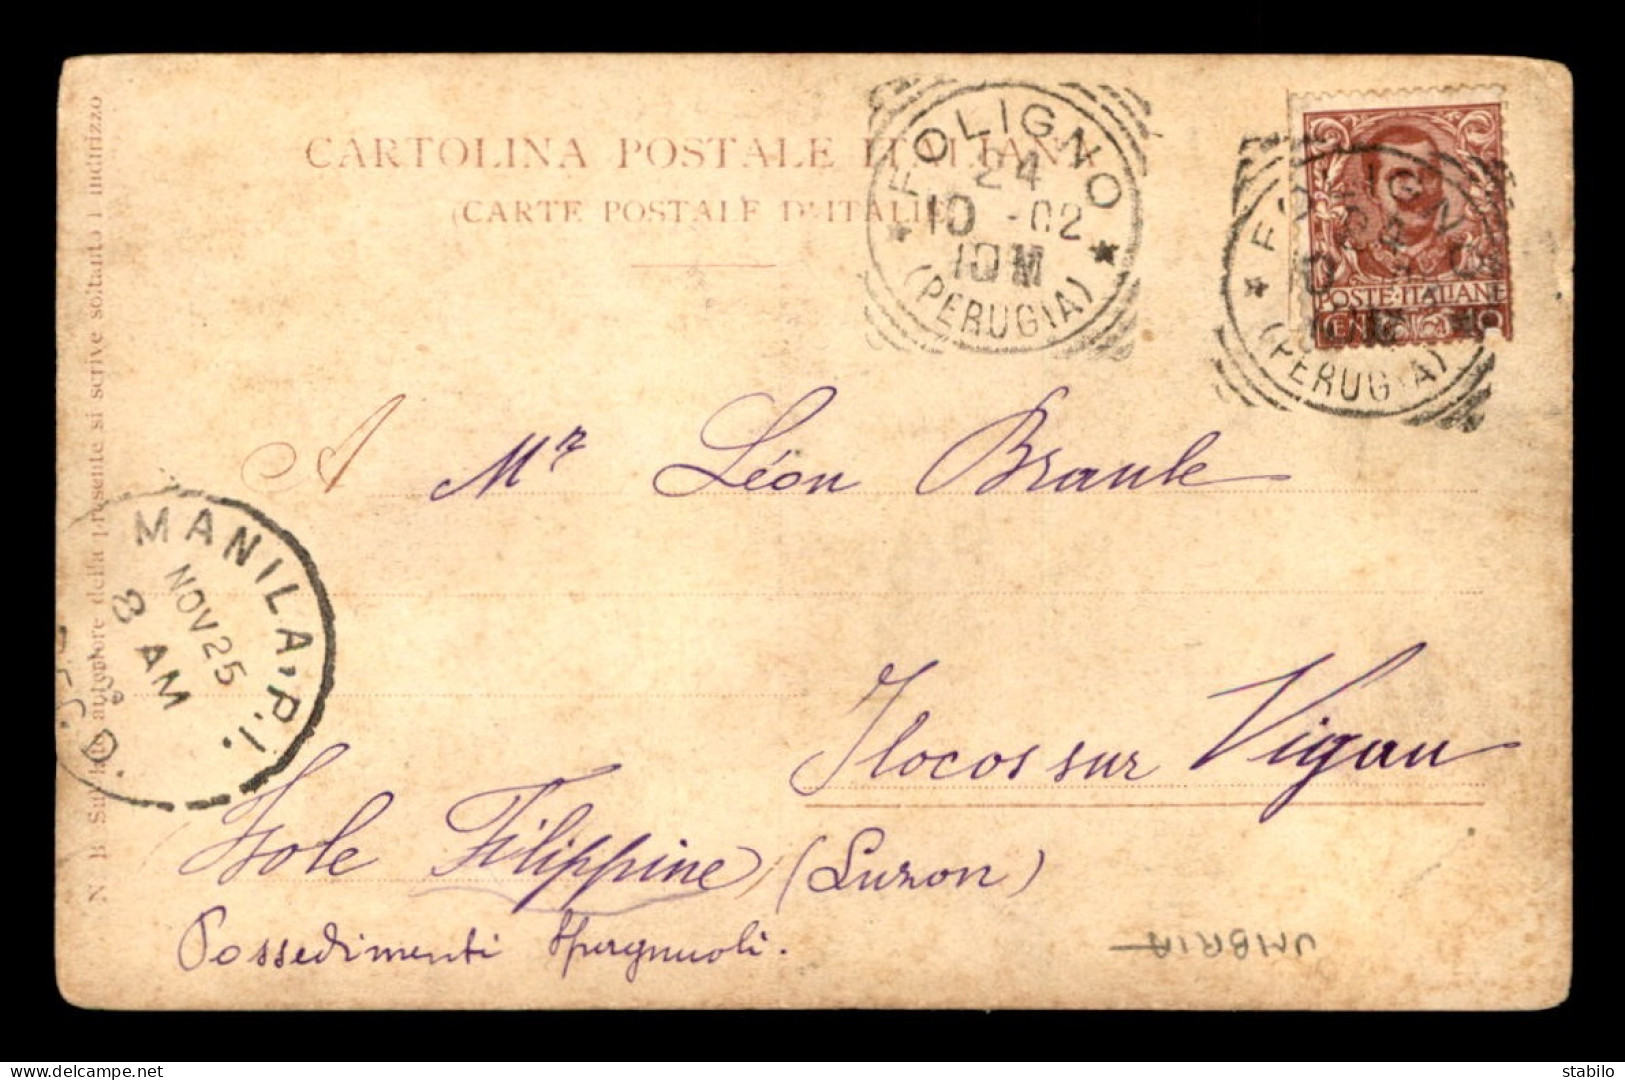 CARTOLINA POSTALE ITALIANA
(CARTE POSTALE D'ITALIE)
FOLIGNO
24
10 -02
10 M
(PERUGIA)
FOLIGNO
(PERUGIA)
POSTE·ITALIANE
A Mr Léon Braule
Ilocos sur Vigan
Isole Filippine (Luzon)
Possedimenti Spagnuoli.
MANILA, P.I.
NOV 25
8 AM
N. B. Sul lato anteriore della presente si scrive soltanto l'indirizzo
UMBRIA
stabilo